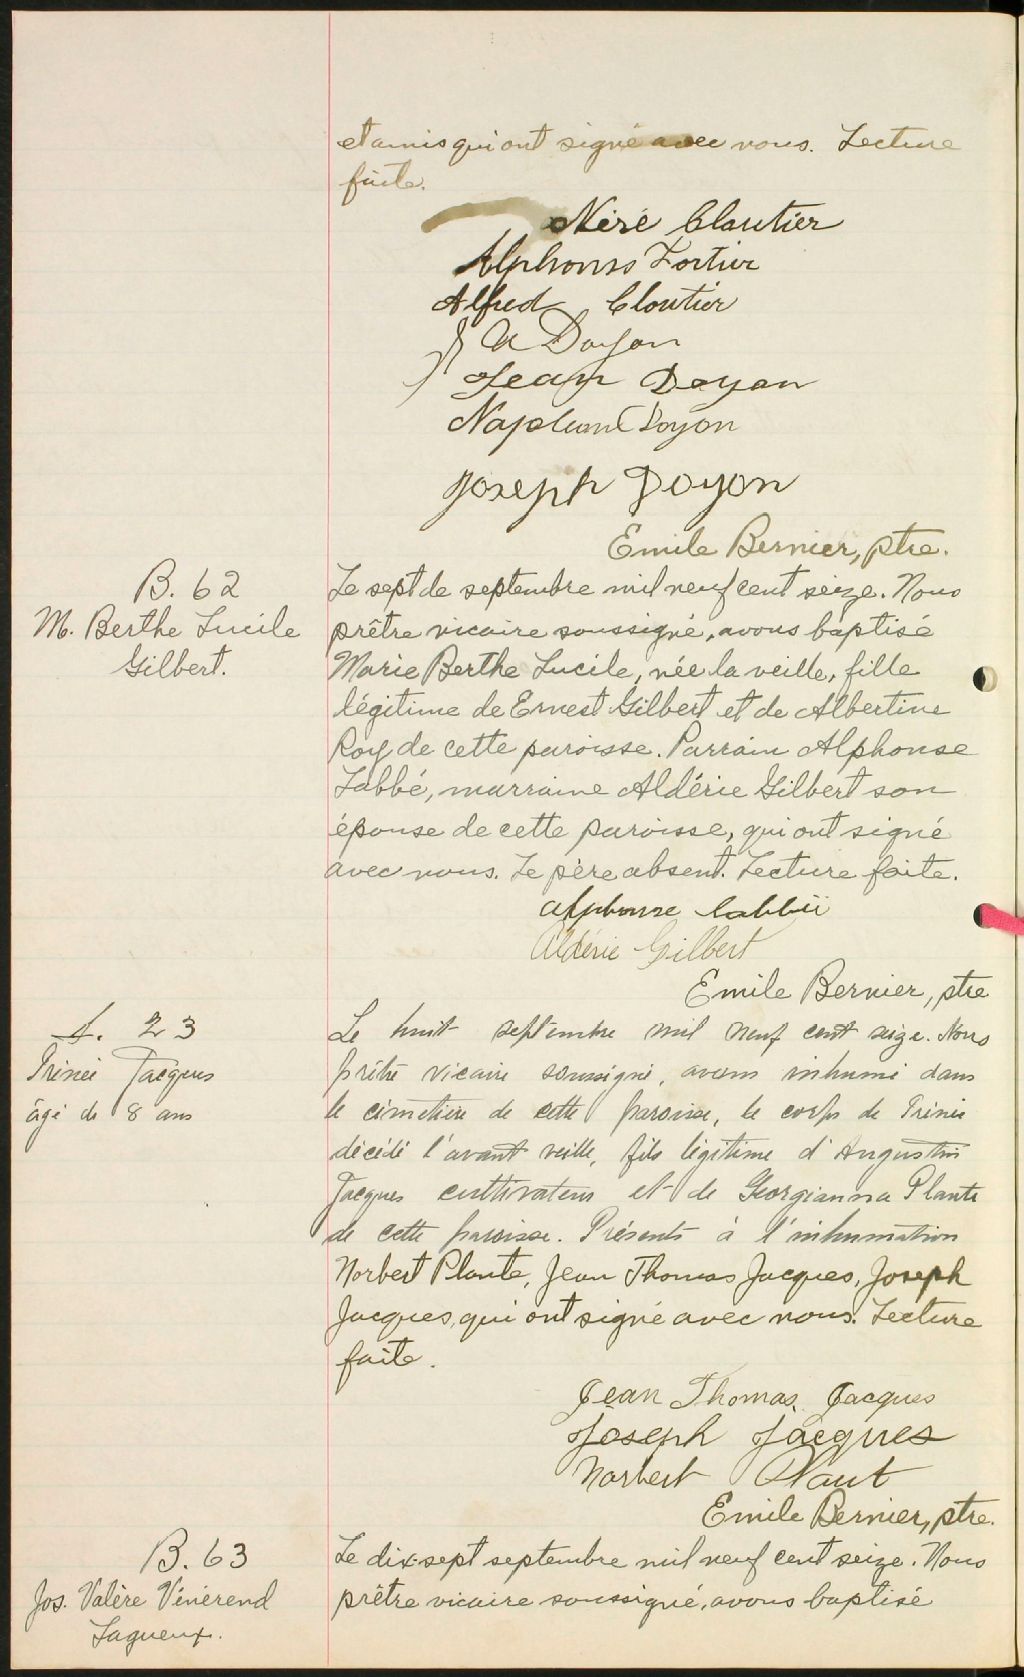 et amis qui ont signé avec nous. Lecture
faite.
Néré Cloutier
Alphonse Fortier
Alfred Cloutier
J A Doyon
Jean Doyon
Napoleon Doyon
Joseph Doyon
Emile Bernier, ptre.
B. 62
M. Berthe Lucile
Gilbert.
Le sept de septembre mil neuf cent seize. Nous
prêtre vicaire soussigné, avons baptisé
Marie Berthe Lucile, née la veille, fille
légitime de Ernest Gilbert et de Albertine
Roy de cette paroisse. Parrain Alphonse
Labbé, marraine Aldérie Gilbert son
épouse de cette paroisse, qui ont signé
avec nous. Le père absent. Lecture faite.
Alphonse Labbé
Aldérie Gilbert
Emile Bernier, ptre
S. 23
Irénée Jacques
âgé de 8 ans
Le huit septembre mil neuf cent seize. Nous
prêtre vicaire soussigné, avons inhumé dans
le cimetière de cette paroisse, le corps de Irénée
décédé l'avant veille, fils légitime d'Augustin
Jacques cultivateur et de Georgianna Plante
de cette paroisse. Présents à l'inhumation
Norbert Plante, Jean Thomas Jacques, Joseph
Jacques, qui ont signé avec nous. Lecture
faite.
Jean Thomas Jacques
Joseph Jacques
Norbert Plant
Emile Bernier, ptre.
B. 63
Jos. Valère Vénérend
Lagueux.
Le dix-sept septembre mil neuf cent seize. Nous
prêtre vicaire soussigné, avons baptisé